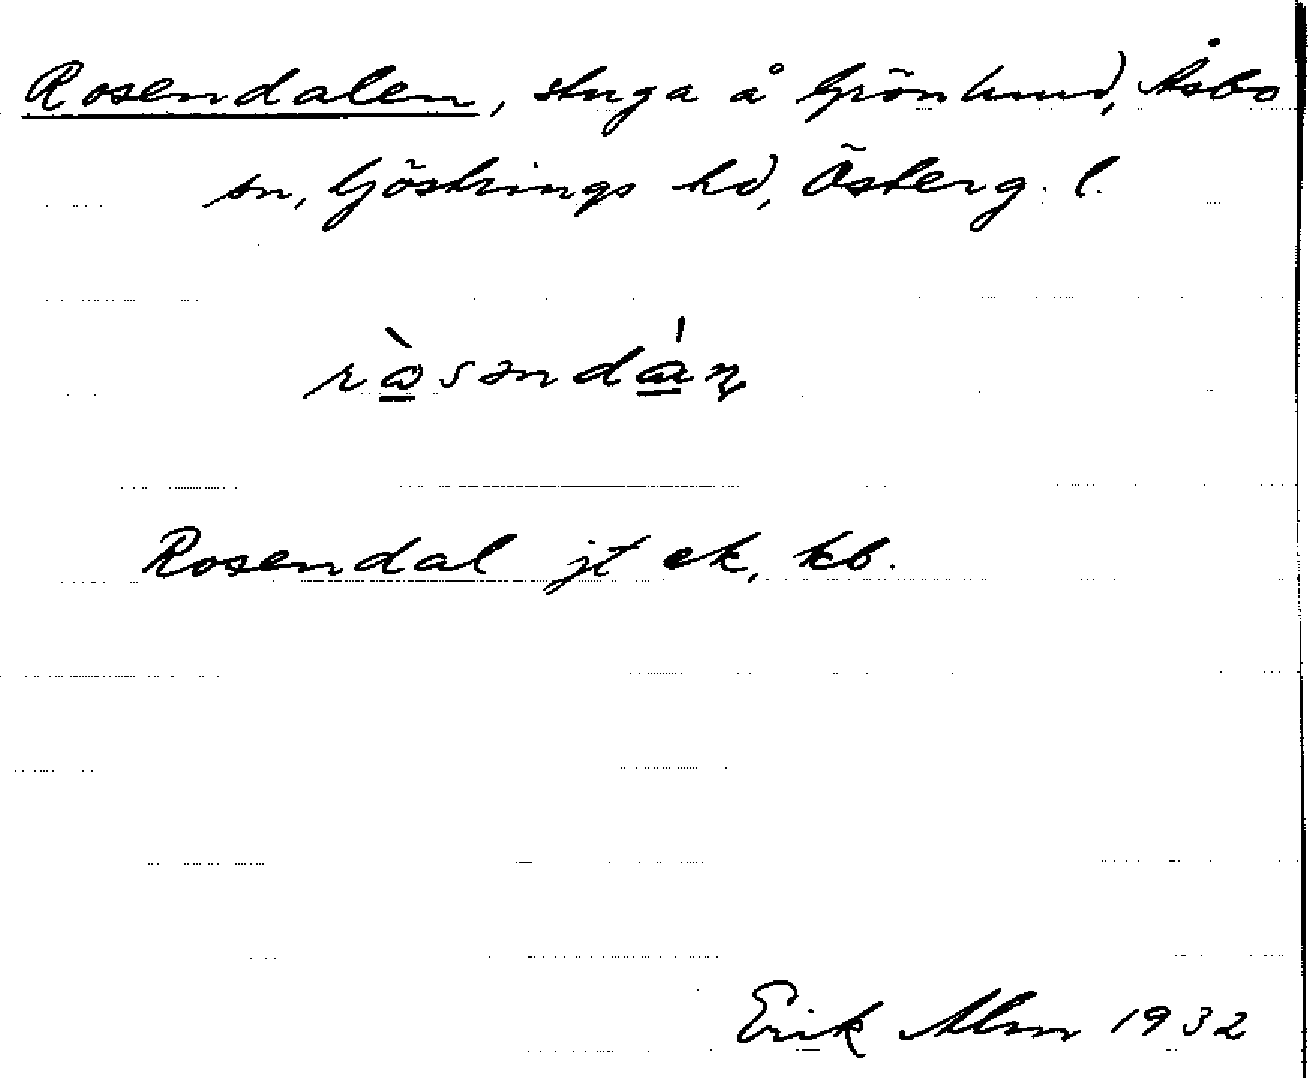 Rosendalen, stuga å Grönlund, Åsbo
sn, Göstrings hd, Österg. l.
ròsəndán̥
Rosendal jt ek, kb.
Erik Alm 1932